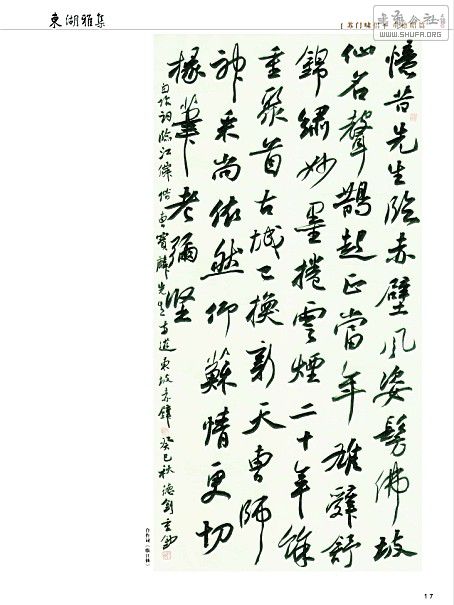 東湖雅集
WWW.SHUFA.ORG
憶昔先生臨赤壁風姿髣佛坡
仙名聲鵲起正當年雄辭舒
錦繡妙墨捲雲煙二十年餘
重聚首古城已換新天曹師
神采尚依然仰蘇情更切
椽筆老彌堅
自作詞臨江僊偕曹寶麟先生重遊東坡赤壁 癸巳秋
17